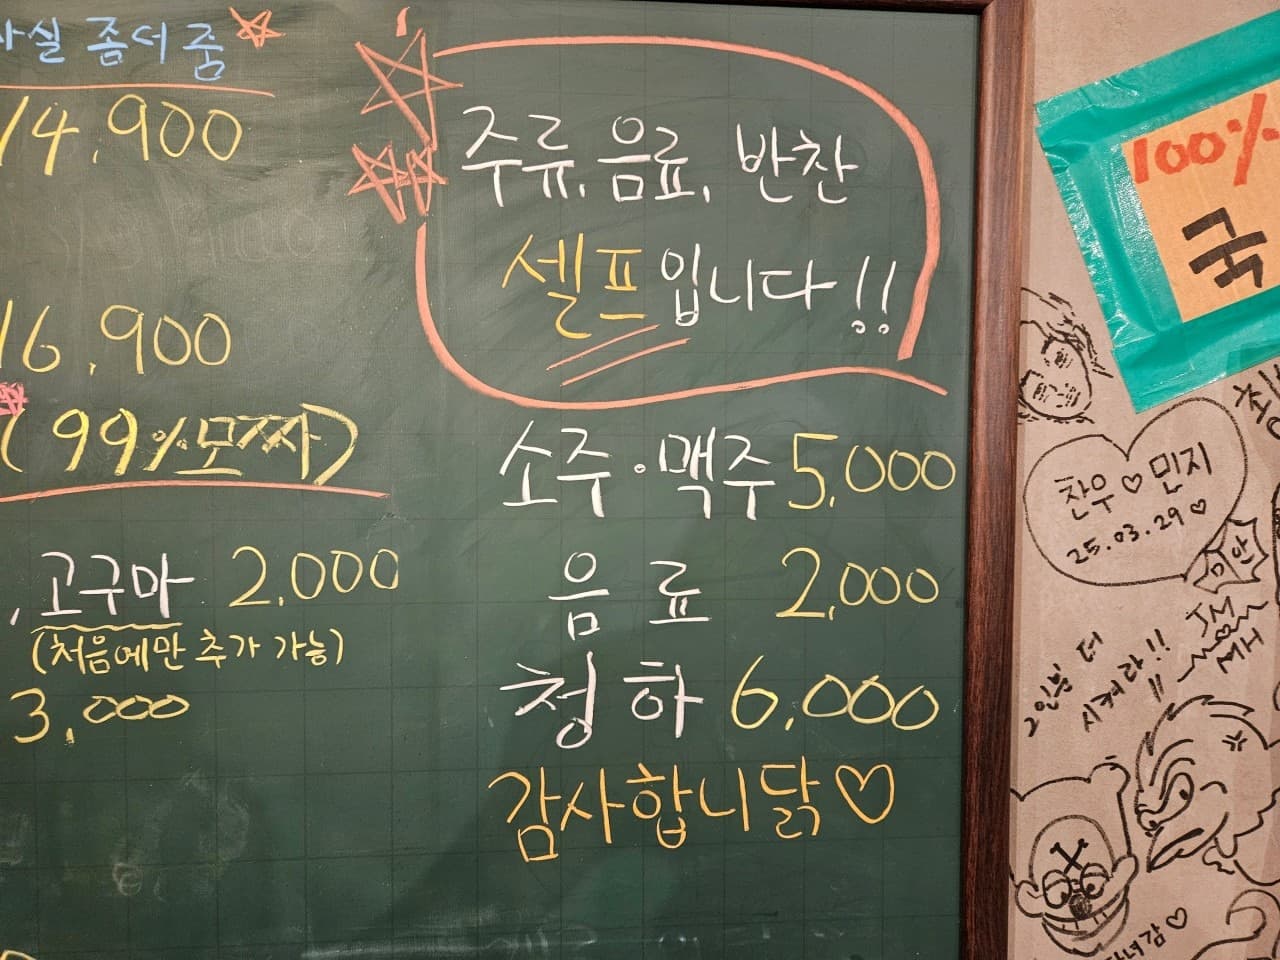 사실 좀더 줌
14,900
16,900
(99% 모짜)
, 고구마 2,000
(처음에만 추가 가능)
3,000
주류, 음료, 반찬
셀프입니다!!
소주·맥주 5,000
음 료 2,000
청 하 6,000
감사합니닭♡
100%
국
찬우♡민지
25.03.29♡
미안
JM
MH
2인분 더
시켜라!!